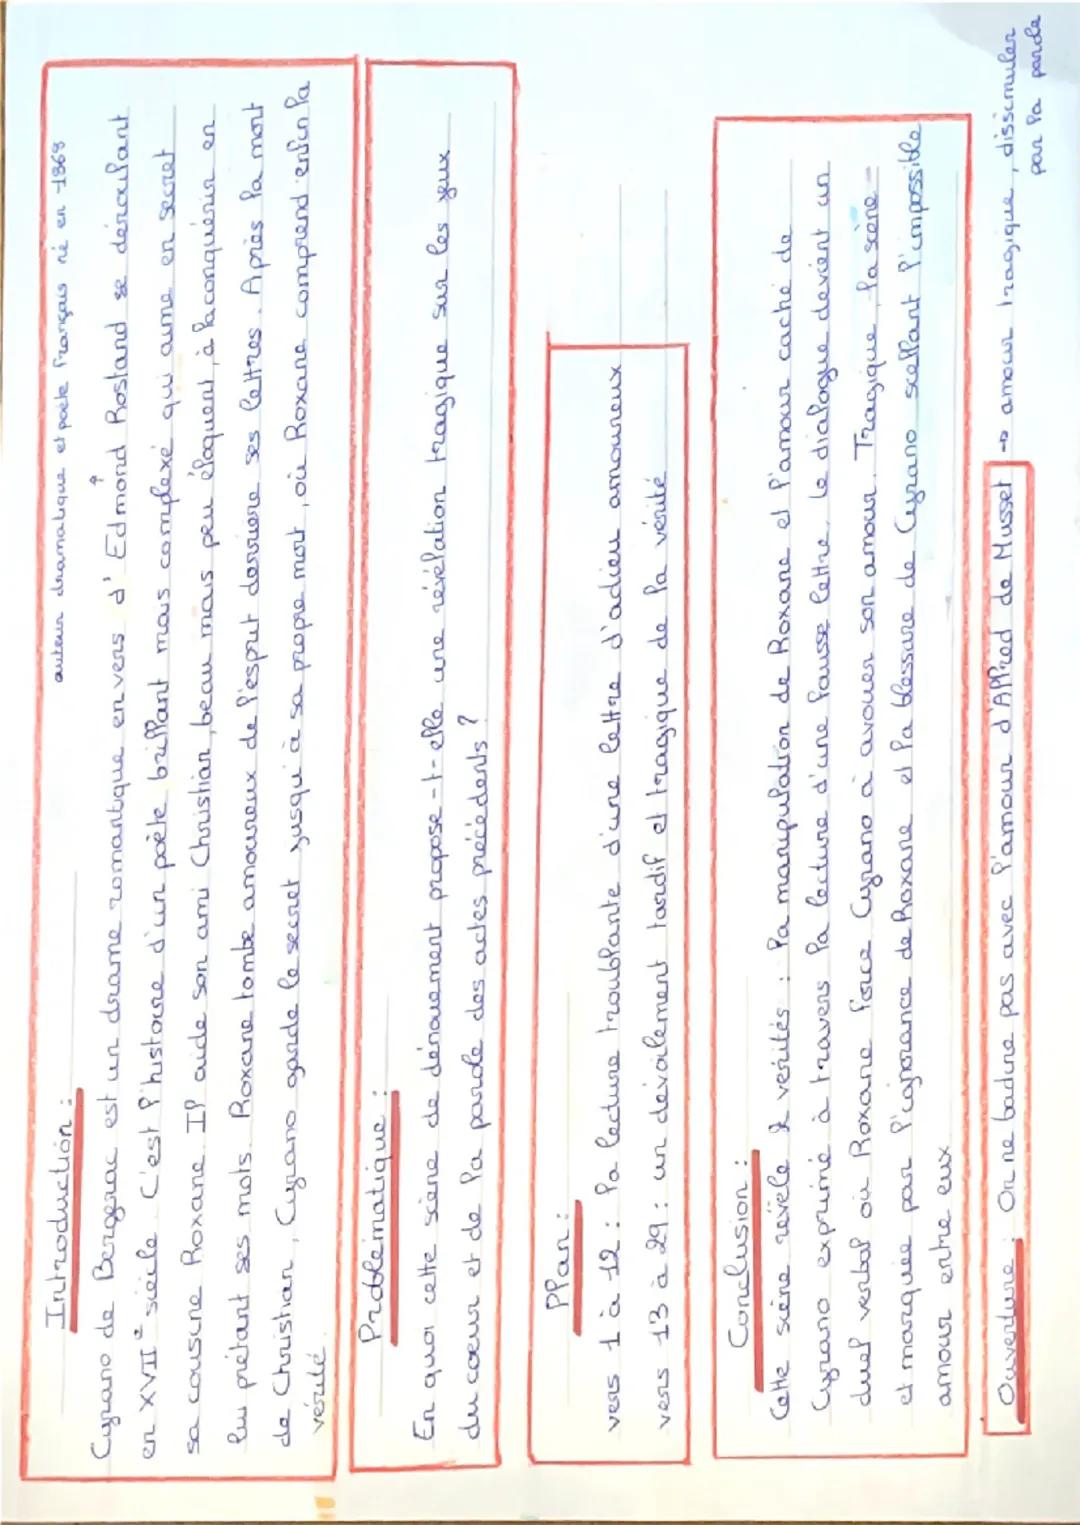 auteur dramatique et poète français né en 1868
Introduction :
Cyrano de Bergerac est un drame romantique en vers d'Edmond Rostand se déroulant
en XVIIe siècle. C'est l'histoire d'un poète brillant mais complexé qui aime en secret
sa cousine Roxane. Il aide son ami Christian, beau mais peu éloquent, à la conquérir en
lui prêtant ses mots. Roxane tombe amoureux de l'esprit derrière ses lettres. Après la mort
de Christian, Cyrano garde le secret jusqu'à sa propre mort, où Roxane comprend enfin la
vérité.
Problématique :
En quoi cette scène de dénouement propose-t-elle une révélation tragique sur les jeux
du coeur et de la parole des actes précédents ?
Plan :
vers 1 à 12 : la lecture troublante d'une lettre d'adieu amoureux
vers 13 à 29 : un dévoilement tardif et tragique de la vérité
Conclusion :
Cette scène révèle 2 vérités : la manipulation de Roxane et l'amour caché de
Cyrano exprimé à travers la lecture d'une fausse lettre. Le dialogue devient un
duel verbal où Roxane force Cyrano à avouer son amour. Tragique, la scène
est marquée par l'ignorance de Roxane et la blessure de Cyrano scellant l'impossible
amour entre eux
Ouverture : On ne badine pas avec l'amour d'Alfred de Musset → amour tragique, dissimuler
par la parole